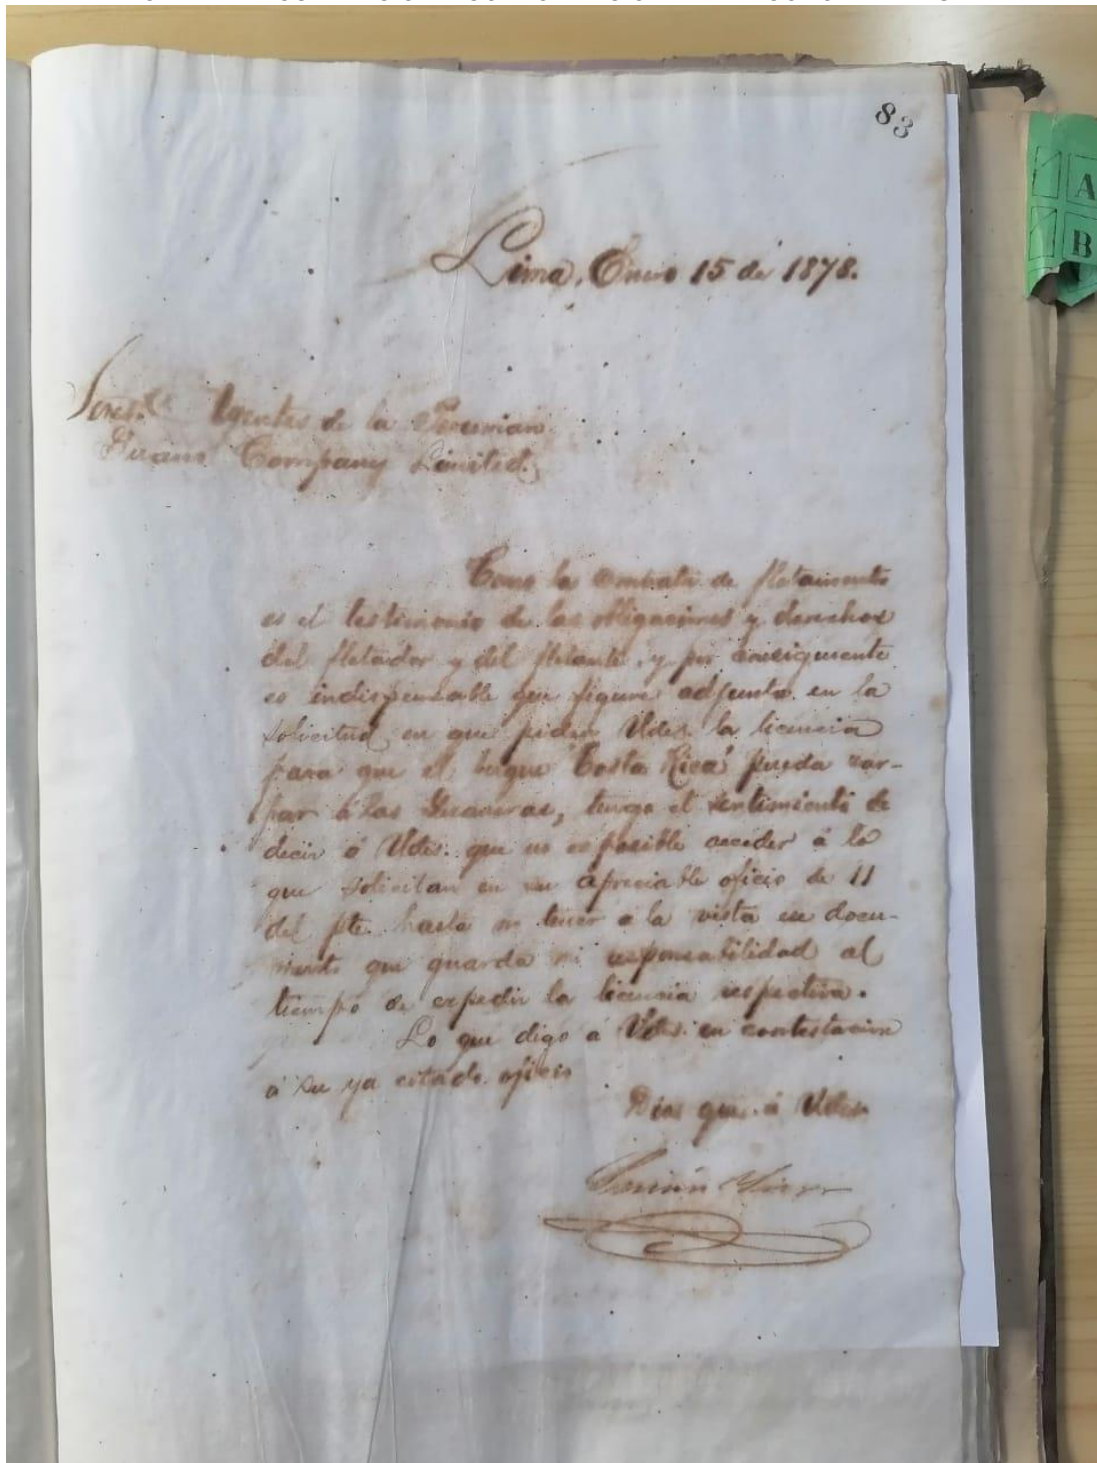 83
Lima, Enero 15 de 1878.
Sores. Agentes de la Peruvian
Guano Company Limited.
Como la contrata de fletamento
es el testimonio de las obligaciones y derechos
del fletador y del fletante, y por consiguiente
es indispensable que figure adjunta en la
solicitud en que piden Udes. la licencia
para que el buque "Costa Rica" pueda zar-
par á las Guaneras, tengo el sentimiento de
decir á Udes. que no es posible acceder á lo
que solicitan en su apreciable oficio de 11
del pte. hasta no tener a la vista ese docu-
mento que guarda mi responsabilidad al
tiempo de expedir la licencia respectiva.
Lo que digo á Udes. en contestacion
á su ya citado oficio
Dios gue. á Udes.
A
B